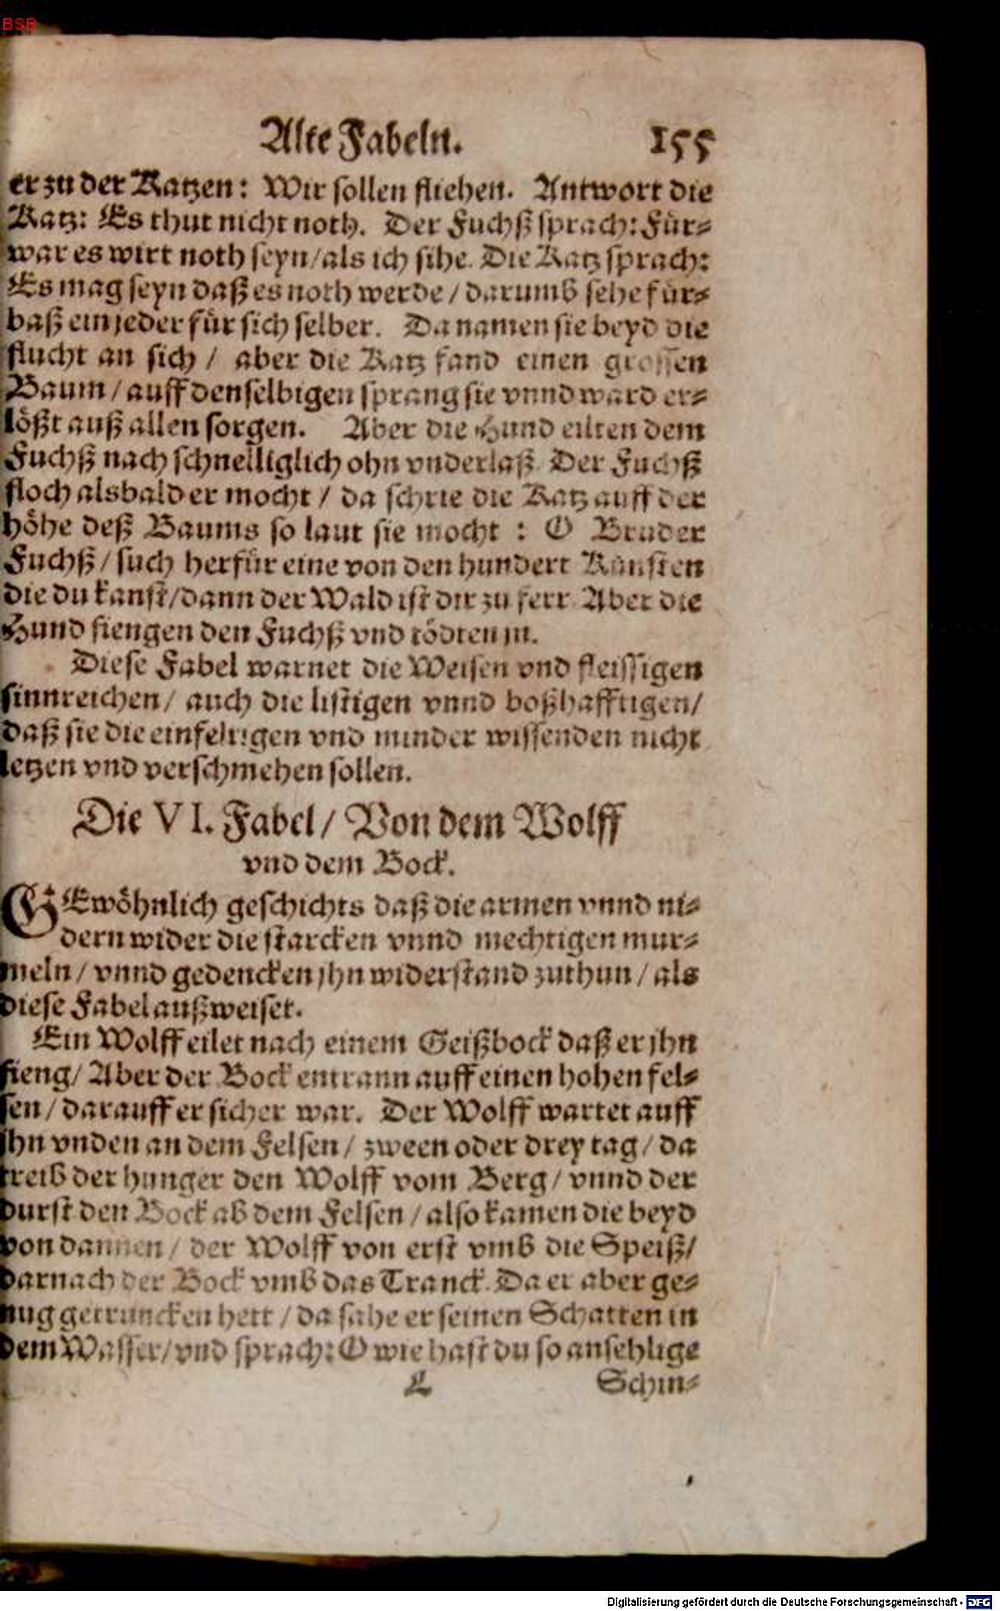 BSB
Alte Fabeln. 155
er zu der Katzen: Wir sollen fliehen. Antwort die
Katz: Es thut nicht noth. Der Fuchß sprach: Für-
war es wirt noth seyn/als ich sihe. Die Katz sprach:
Es mag seyn daß es noth werde / darumb sehe für-
baß ein jeder für sich selber. Da namen sie beyd die
flucht an sich / aber die Katz fand einen grossen
Baum / auff denselbigen sprang sie vnnd ward er-
lößt auß allen sorgen. Aber die Hund eilten dem
Fuchß nach schnelliglich ohn vnderlaß. Der Fuchß
floch alsbald er mocht / da schrie die Katz auff der
höhe deß Baums so laut sie mocht : O Bruder
Fuchß / such herfür eine von den hundert Künsten
die du kanst/dann der Wald ist dir zu ferr. Aber die
Hund fiengen den Fuchß vnd tödten jn.
Diese Fabel warnet die Weisen vnd fleissigen
sinnreichen/ auch die listigen vnnd boßhafftigen/
daß sie die einfeltigen vnd minder wissenden nicht
letzen vnd verschmehen sollen.
Die VI. Fabel/ Von dem Wolff
vnd dem Bock.
GEwöhnlich geschichts daß die armen vnnd ni-
dern wider die starcken vnnd mechtigen mur-
meln/ vnnd gedencken jhn widerstand zuthun/ als
diese Fabel außweiset.
Ein Wolff eilet nach einem Geißbock daß er jhn
fieng/ Aber der Bock entrann auff einen hohen fel-
sen / darauff er sicher war. Der Wolff wartet auff
jhn vnden an dem Felsen/ zween oder drey tag/ da
treib der hunger den Wolff vom Berg/ vnnd der
durst den Bock ab dem Felsen / also kamen die beyd
von dannen/ der Wolff von erst vmb die Speiß/
darnach der Bock vmb das Tranck. Da er aber ge-
nug getruncken hett / da sahe er seinen Schatten in
dem Wasser/ vnd sprach: O wie hast du so ansehlige
L Schin-
Digitalisierung gefördert durch die Deutsche Forschungsgemeinschaft - DFG